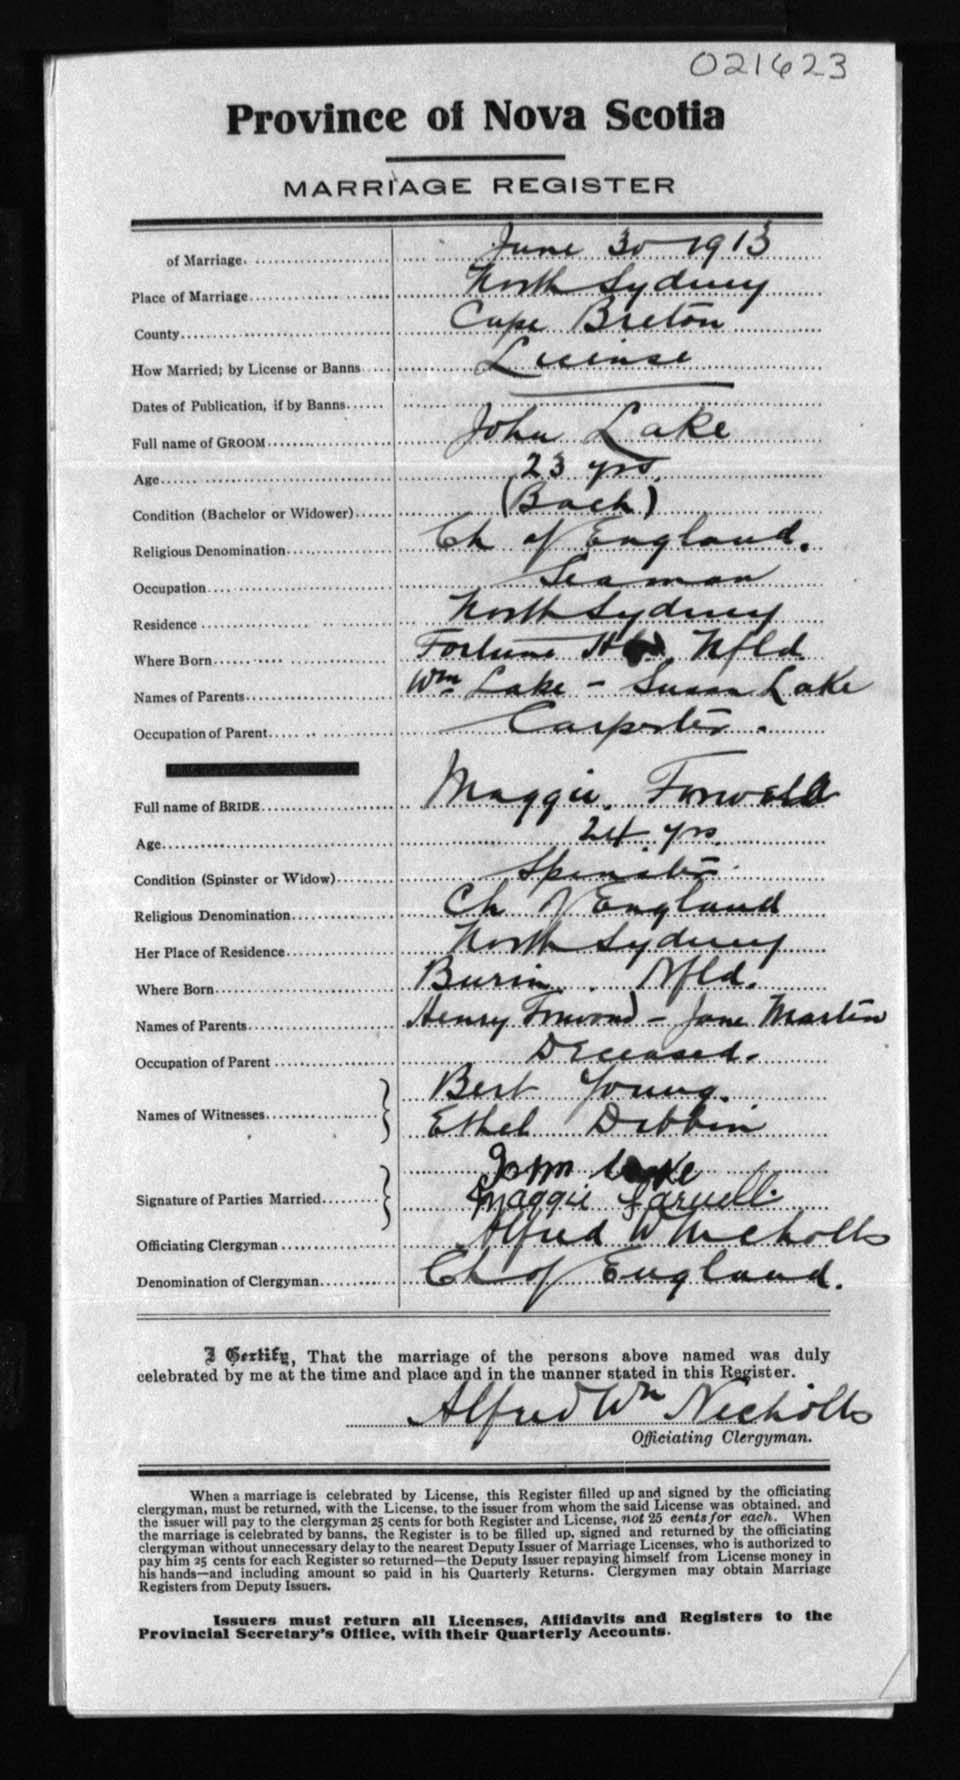 021623
Province of Nova Scotia
MARRIAGE REGISTER
of Marriage June 30 1913
Place of Marriage North Sydney
County Cape Breton
How Married; by License or Banns License
Dates of Publication, if by Banns
Full name of GROOM John Lake
Age 23 yrs.
Condition (Bachelor or Widower) (Bach)
Religious Denomination Ch of England.
Occupation Seaman
Residence North Sydney
Where Born Fortune Nfld
Names of Parents Wm Lake - Susan Lake
Occupation of Parent Carpenter.
Full name of BRIDE Maggie
Age 24 yrs.
Condition (Spinster or Widow) Spinster
Religious Denomination Ch of England
Her Place of Residence North Sydney
Where Born Burin Nfld.
Names of Parents Henry - Jane Martin
Occupation of Parent Deceased.
Names of Witnesses Bert Young.
Ethel Dibbin
Signature of Parties Married John Lake
Maggie Farwell.
Officiating Clergyman Alfred W Nicholls
Denomination of Clergyman Ch of England.
I Certify, That the marriage of the persons above named was duly
celebrated by me at the time and place and in the manner stated in this Register.
Alfred Wm Nicholls
Officiating Clergyman.
When a marriage is celebrated by License, this Register filled up and signed by the officiating
clergyman, must be returned, with the License, to the issuer from whom the said License was obtained, and
the issuer will pay to the clergyman 25 cents for both Register and License, not 25 cents for each. When
the marriage is celebrated by banns, the Register is to be filled up, signed and returned by the officiating
clergyman without unnecessary delay to the nearest Deputy Issuer of Marriage Licenses, who is authorized to
pay him 25 cents for each Register so returned—the Deputy Issuer repaying himself from License money in
his hands—and including amount so paid in his Quarterly Returns. Clergymen may obtain Marriage
Registers from Deputy Issuers.
Issuers must return all Licenses, Affidavits and Registers to the
Provincial Secretary's Office, with their Quarterly Accounts.